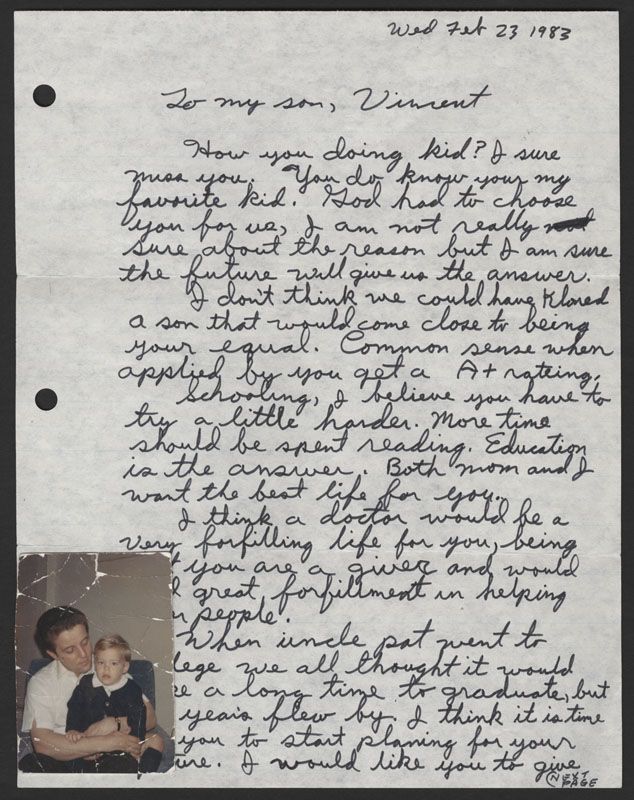 Wed Feb 23 1983
To my son, Vincent
How you doing kid? I sure
miss you. You do know your my
favorite kid. God had to choose
you for us, I am not really
sure about the reason but I am sure
the future will give us the answer.
I don't think we could have Klored
a son that would come close to being
your equal. Common sense when
applied by you get a A+ rateing.
Schooling, I believe you have to
try a little harder. More time
should be spent reading. Education
is the answer. Both mom and I
want the best life for you.
I think a doctor would be a
very forfilling life for you, being
you are a giver and would
great forfillment in helping
people.
When uncle pat went to
lege we all thought it would
e a long time to graduate, but
years flew by. I think it is time
you to start planing for your
ure. I would like you to give
(NEXT
PAGE